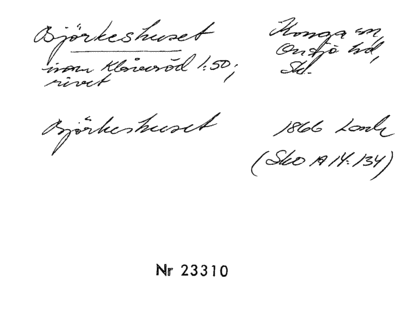 Björkeshuset Konga sn,
inom Klöveröd 1:50; Onsjö hd,
rivet Sk.
Björkeshuset 1866 Lask
(Sko A 14:134)
Nr 23310